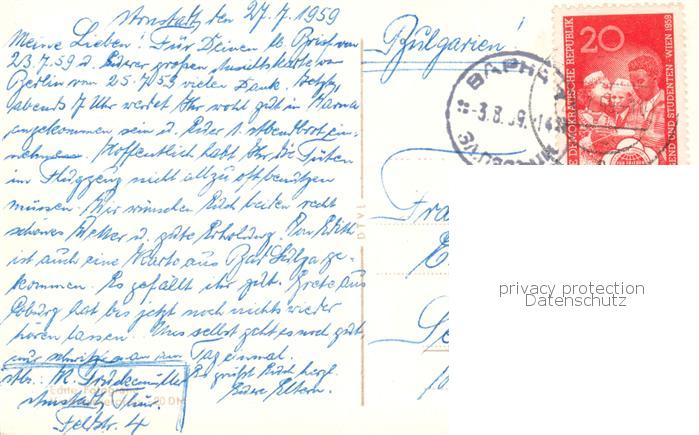 Arnstadt, den 27.7.1959
Meine Lieben! Für Deinen lb. Brief vom
23.7.59 u. Eurer großen Ansichtskarte von
Berlin vom 25.7.59 vielen Dank. Jetzt,
abends 7 Uhr werdet Ihr wohl gut in Warna
angekommen sein u. Euer 1. Abendbrot ein-
nehmen. Hoffentlich habt Ihr die Tüten
im Flugzeug nicht allzu oft benützen
müssen. Wir wünschen Euch beiden recht
schönes Wetter u. gute Erholung. Von Edith
ist auch eine Karte aus Bad Sulza ge-
kommen. Es gefällt ihr gut. Grete aus
Coburg hat bis jetzt noch nichts wieder
hören lassen. Uns selbst geht es noch gut,
nur schwitzen am Tag einmal.
Es grüßt Euch herzl.
Eure Eltern.
Abs. M.
Arnstadt/Thür.
Feldstr. 4
DTVL
Bulgarien!
ВАРНА
-3.8.59.-14
20
DEMOKRATISCHE REPUBLIK
JUGEND UND STUDENTEN · WIEN 1959
Fra
E
privacy protection
Datenschutz